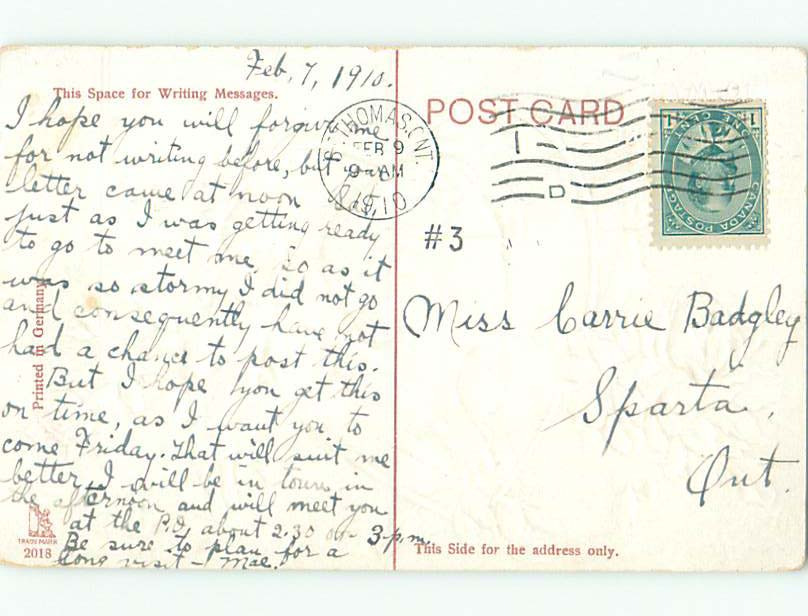 Feb. 7, 1910.
This Space for Writing Messages.
I hope you will forgive me
for not writing before, but your
letter came at noon Sat,
just as I was getting ready
to go to meet me, so as it
was so stormy I did not go
and consequently have not
had a chance to post this.
But I hope you get this
on time, as I want you to
come Friday. That will suit me
better. I will be in town in
the afternoon and will meet you
at the P.O, about 2.30 or 3 p.m.
Be sure to plan for a
long visit - Mae.
Printed in Germany
TRADE MARK
2018
POST CARD
ST THOMAS. ONT.
FEB 9
9 AM
1910
D
1 1
ONE CENT
CANADA POSTAGE
#3
Miss Carrie Badgley
Sparta,
Ont.
This Side for the address only.